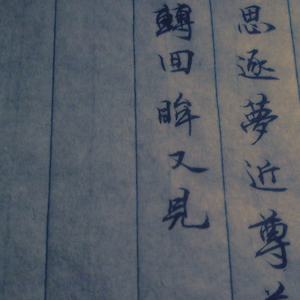 思逐夢近尊
轉回眸又見